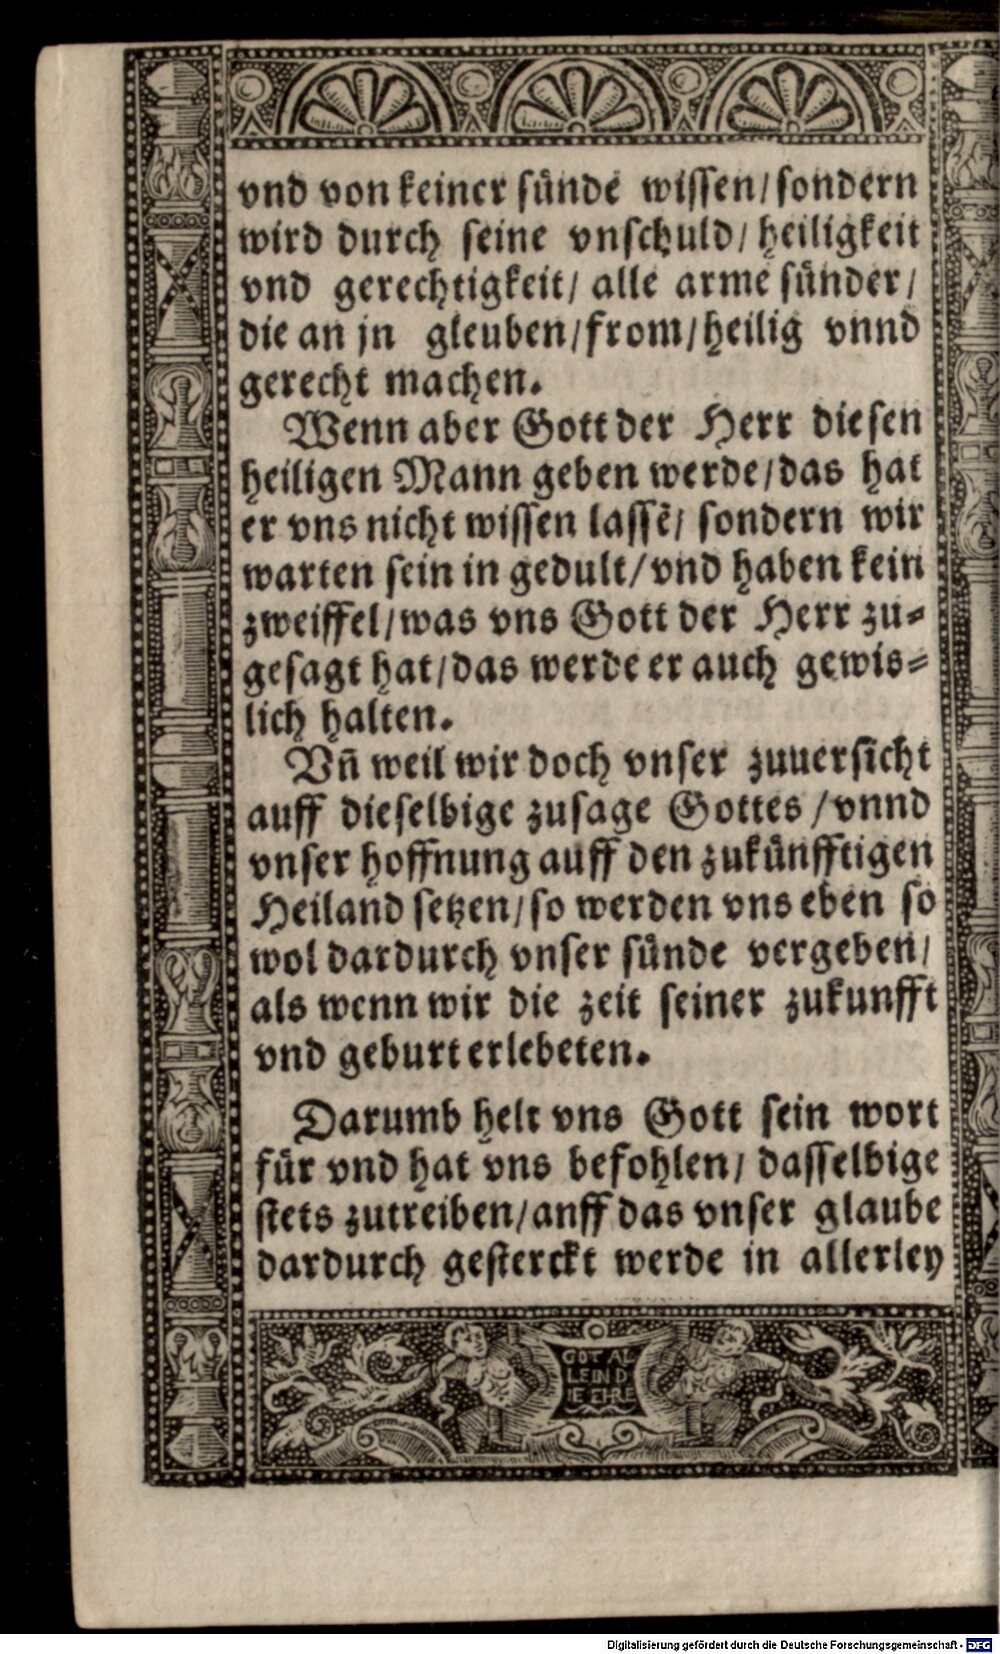 vnd von keiner sünde wissen/ sondern
wird durch seine vnschuld/ heiligkeit
vnd gerechtigkeit/ alle arme sünder/
die an jn gleuben/ from/ heilig vnnd
gerecht machen.
Wenn aber Gott der Herr diesen
heiligen Mann geben werde/ das hat
er vns nicht wissen lassẽ/ sondern wir
warten sein in gedult/ vnd haben kein
zweiffel/ was vns Gott der Herr zu-
gesagt hat/ das werde er auch gewis-
lich halten.
Vñ weil wir doch vnser zuuersicht
auff dieselbige zusage Gottes / vnnd
vnser hoffnung auff den zukünfftigen
Heiland setzen/ so werden vns eben so
wol dardurch vnser sünde vergeben/
als wenn wir die zeit seiner zukunfft
vnd geburt erlebeten.
Darumb helt vns Gott sein wort
für vnd hat vns befohlen/ dasselbige
stets zutreiben/ anff das vnser glaube
dardurch gesterckt werde in allerley
GOT AL
LEIN D
IE EHRE
Digitalisierung gefördert durch die Deutsche Forschungsgemeinschaft - DFG